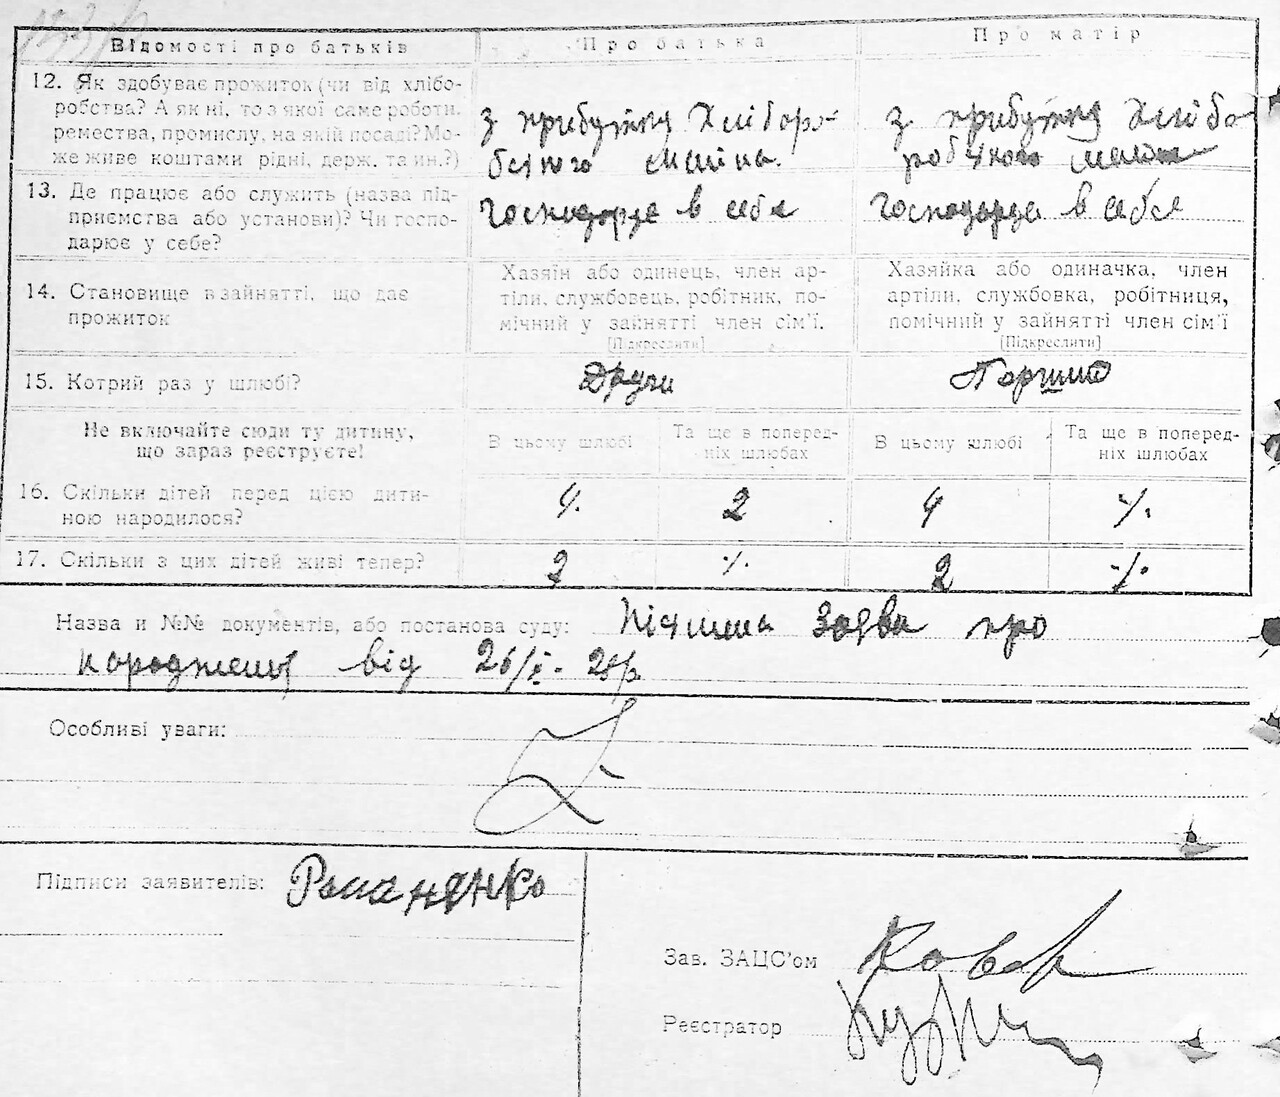 Відомості про батьків
Про батька
Про матір
12. Як здобуває прожиток (чи від хлібо-
робства? А як ні, то з якої саме роботи,
ремества, промислу, на якій посаді? Мо-
же живе коштами рідні, держ. та ин.?)
з прибутку Хліборо-
з прибутку Хлібо
13. Де працює або служить (назва під-
приємства або установи)? Чи госпо-
дарює у себе?
Господарює в себе
Господарює в себе
14. Становище в зайнятті, що дає
прожиток
Хазяїн або одинець, член ар-
тіли, службовець, робітник, по-
мічний у зайнятті член сім'ї.
[Підкреслити]
Хазяйка або одиначка, член
артіли, службовка, робітниця,
помічний у зайнятті член сім'ї
[Підкреслити]
15. Котрий раз у шлюбі?
Други
Першии
Не включайте сюди ту дитину,
що зараз реєструєте!
В цьому шлюбі
Та ще в поперед-
ніх шлюбах
В цьому шлюбі
Та ще в поперед-
ніх шлюбах
16. Скільки дітей перед цією дити-
ною народилося?
4.
2
4
-/.
17. Скільки з цих дітей живі тепер?
2
-/.
2
-/.
Назва и №№ документів, або постанова суду: заява про
народження від 26/X- 28р.
Особливі уваги:
Підписи заявителів: Романенко
Зав. ЗАЦС'ом
Реєстратор